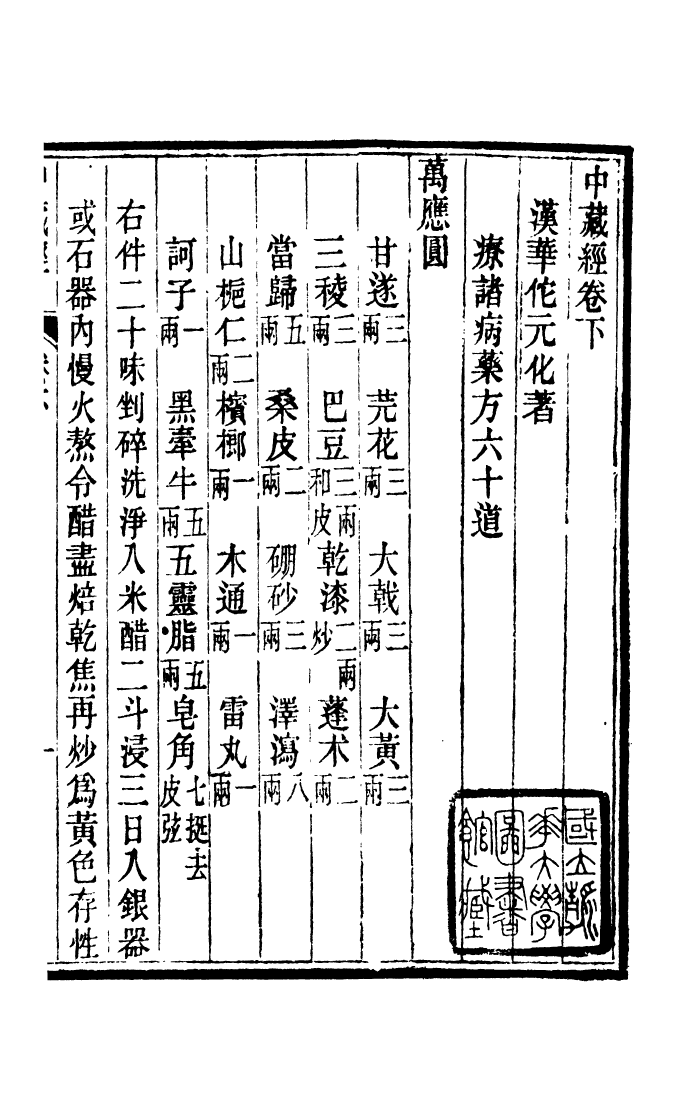 中藏經卷下
漢華佗元化著
療諸病藥方六十道
萬應圓
甘遂三兩 芫花三兩 大戟三兩 大黃三兩
三稜三兩 巴豆三兩和皮 乾漆二兩炒 蓬术二兩
當歸五兩 桑皮二兩 硼砂三兩 澤瀉八兩
山梔仁二兩 檳榔一兩 木通一兩 雷丸一兩
訶子一兩 黑牽牛五兩 五靈脂五兩 皂角七挺去皮弦
右件二十味剉碎洗淨入米醋二斗浸三日入銀器
或石器內慢火熬令醋盡焙乾焦再炒爲黃色存性